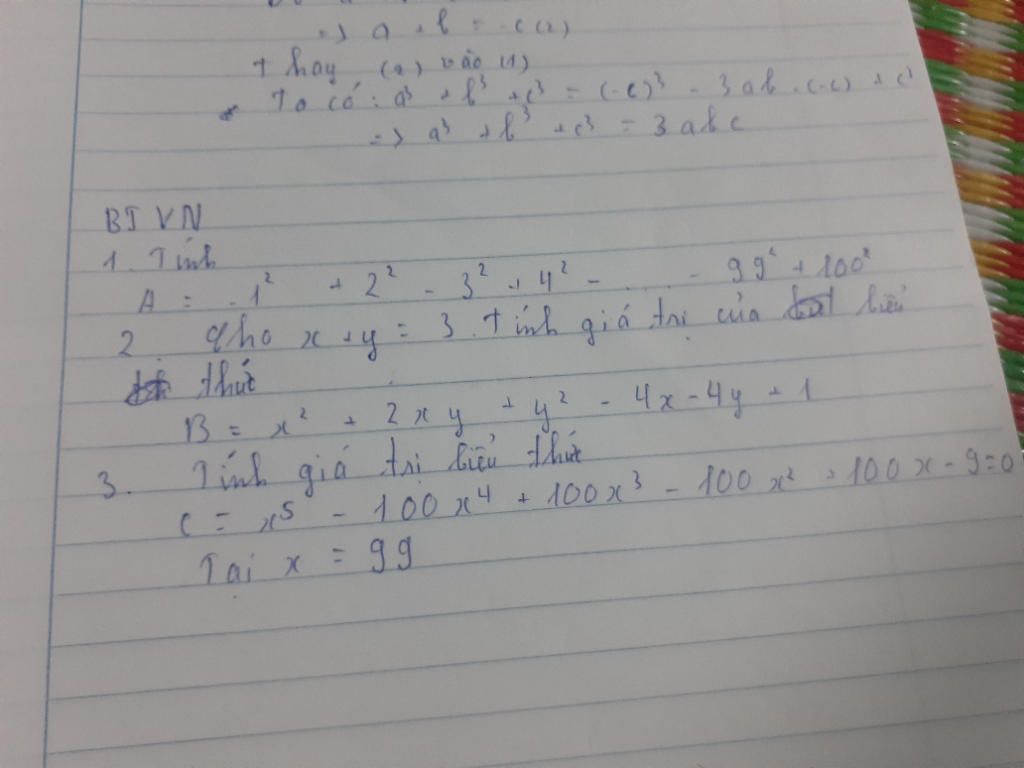 => a + b = -c (2)
Thay (2) vào (1)
Ta có : a³ + b³ + c³ = (-c)³ - 3ab . (-c) + c³
=> a³ + b³ + c³ = 3abc
BTVN
1. Tính
A = -1² + 2² - 3² + 4² - .... - 99² + 100²
2. Cho x + y = 3. Tính giá trị của biểu
thức
B = x² + 2xy + y² - 4x - 4y + 1
3. Tính giá trị biểu thức
C = x⁵ - 100x⁴ + 100x³ - 100x² + 100x - 9 = 0
Tại x = 99